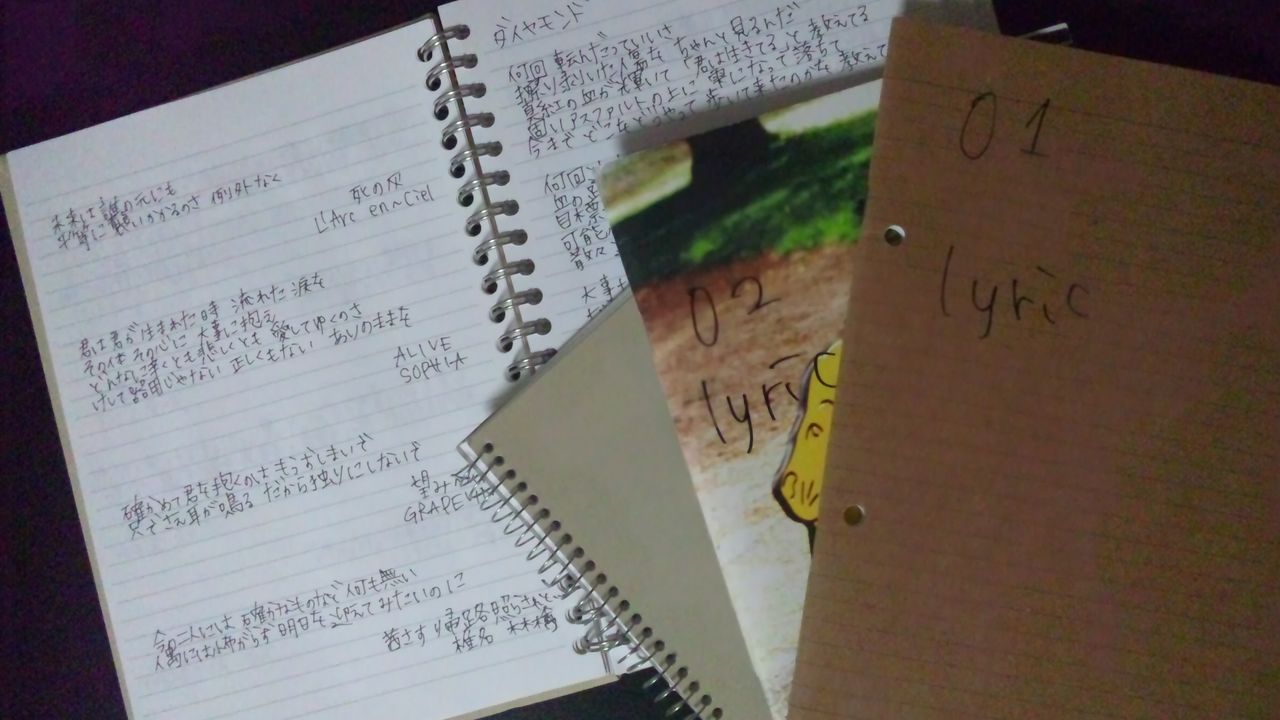 未来は誰の元にも
平等に襲いかかるのさ 例外なく
死の灰
L'Arc en~Ciel
君は君が生まれた時 流れた涙を
その体 その心に 大事に抱え
どんなに辛くとも悲しくとも 愛してゆくのさ
けして器用じゃない 正しくもない ありのままを
ALIVE
SOPHIA
確かめて君を抱くのは もうおしまいで
さえ耳が鳴る だから独りにしないで
望みの
GRAPE
今の二人には確かなものなど何も無い
偶には怖がらず明日を迎えてみたいのに
茜さす 帰路照らされど…
椎名 林檎
ダイヤモンド
何回転んだっていいさ
擦り剥いた傷を ちゃんと見るんだ
真紅の血が輝いて 「君は生きてる」と教えてる
固いアスファルトの上に 雫になって落ちて
今までどこをどうやって 歩いて来たのかを教えて
何回
血の
可能
散々
大事
02
lyric
01
lyric